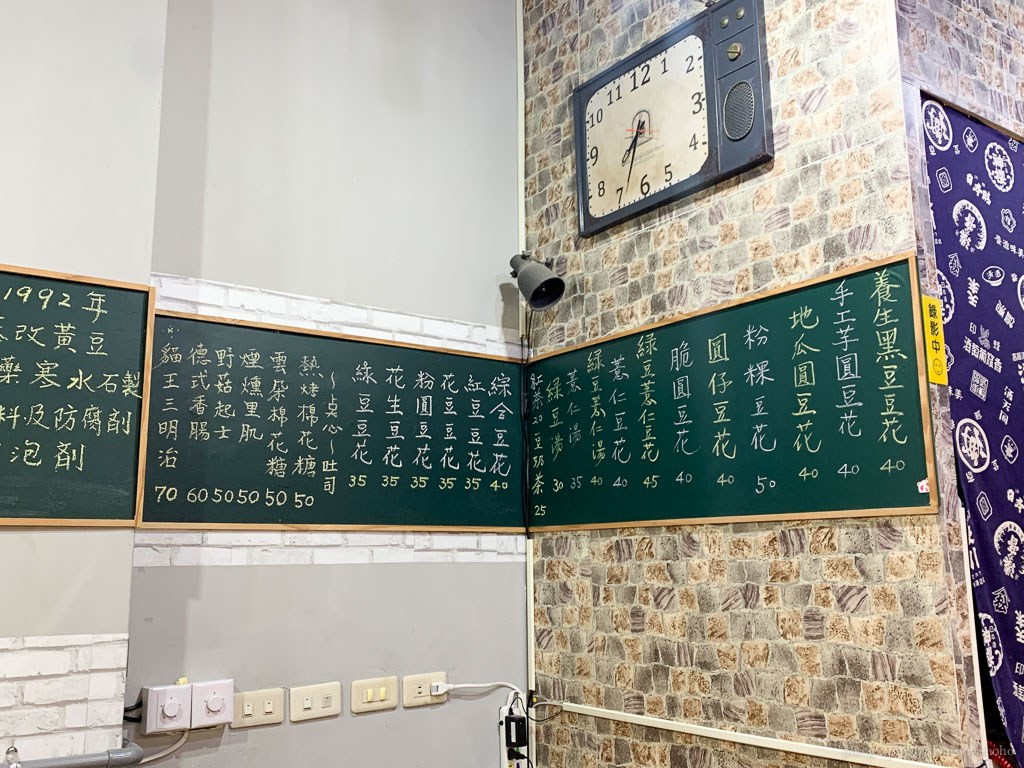 1992年
改黃豆
藥寒水石製
料及防腐劑
泡劑
養生黑豆豆花 40
手工芋圓豆花 40
地瓜圓豆花 40
粉粿豆花 50
圓仔豆花 40
脆圓豆花 40
綠豆薏仁豆花 45
薏仁豆花 40
綠豆薏仁湯 40
薏仁湯 35
綠豆湯 30
紅茶20
豆奶茶 25
綜合豆花 40
紅豆豆花 35
花豆豆花 35
粉圓豆花 35
花生豆花 35
綠豆豆花 35
~點心~吐司
熱烤棉花糖 50
雲朵棉花糖 50
煙燻里肌 50
野菇起士 50
德式香腸 60
貓王三明治 70
12
1
2
3
4
5
6
7
8
9
10
11
錄影中